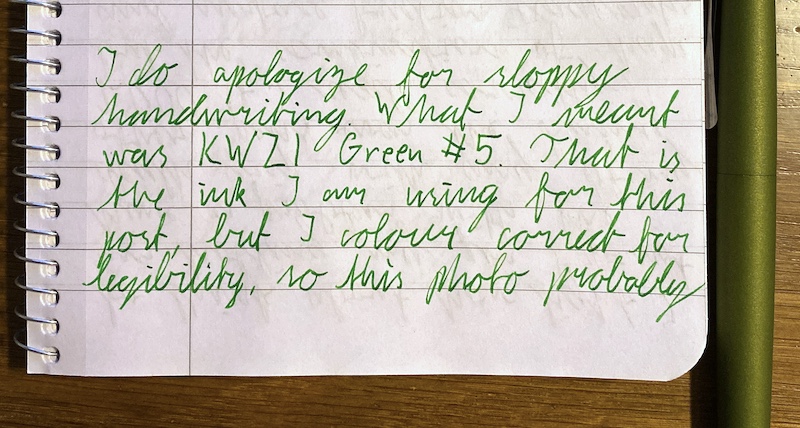 I do apologize for sloppy
handwriting. What I meant
was KWZI Green #5. That is
the ink I am using for this
post, but I colour correct for
legibility, so this photo probably